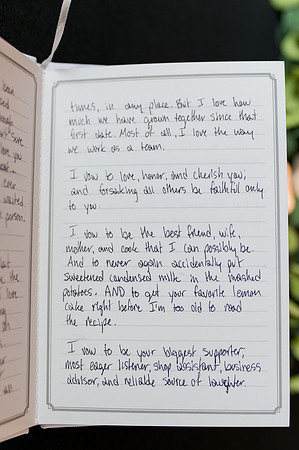 times, in any place. But I love how
much we have grown together since that
first date. Most of all, I love the way
we work as a team.
I vow to love, honor, and cherish you;
and forsaking all others be faithful only
to you.
I vow to be the best friend, wife,
mother, and cook that I can possibly be.
And to never again accidentally put
sweetened condensed milk in the mashed
potatoes. AND to get your favorite lemon
cake right before I'm too old to read
the recipe.
I vow to be your biggest supporter,
most eager listener, shop assistant, business
advisor, and reliable source of laughter.